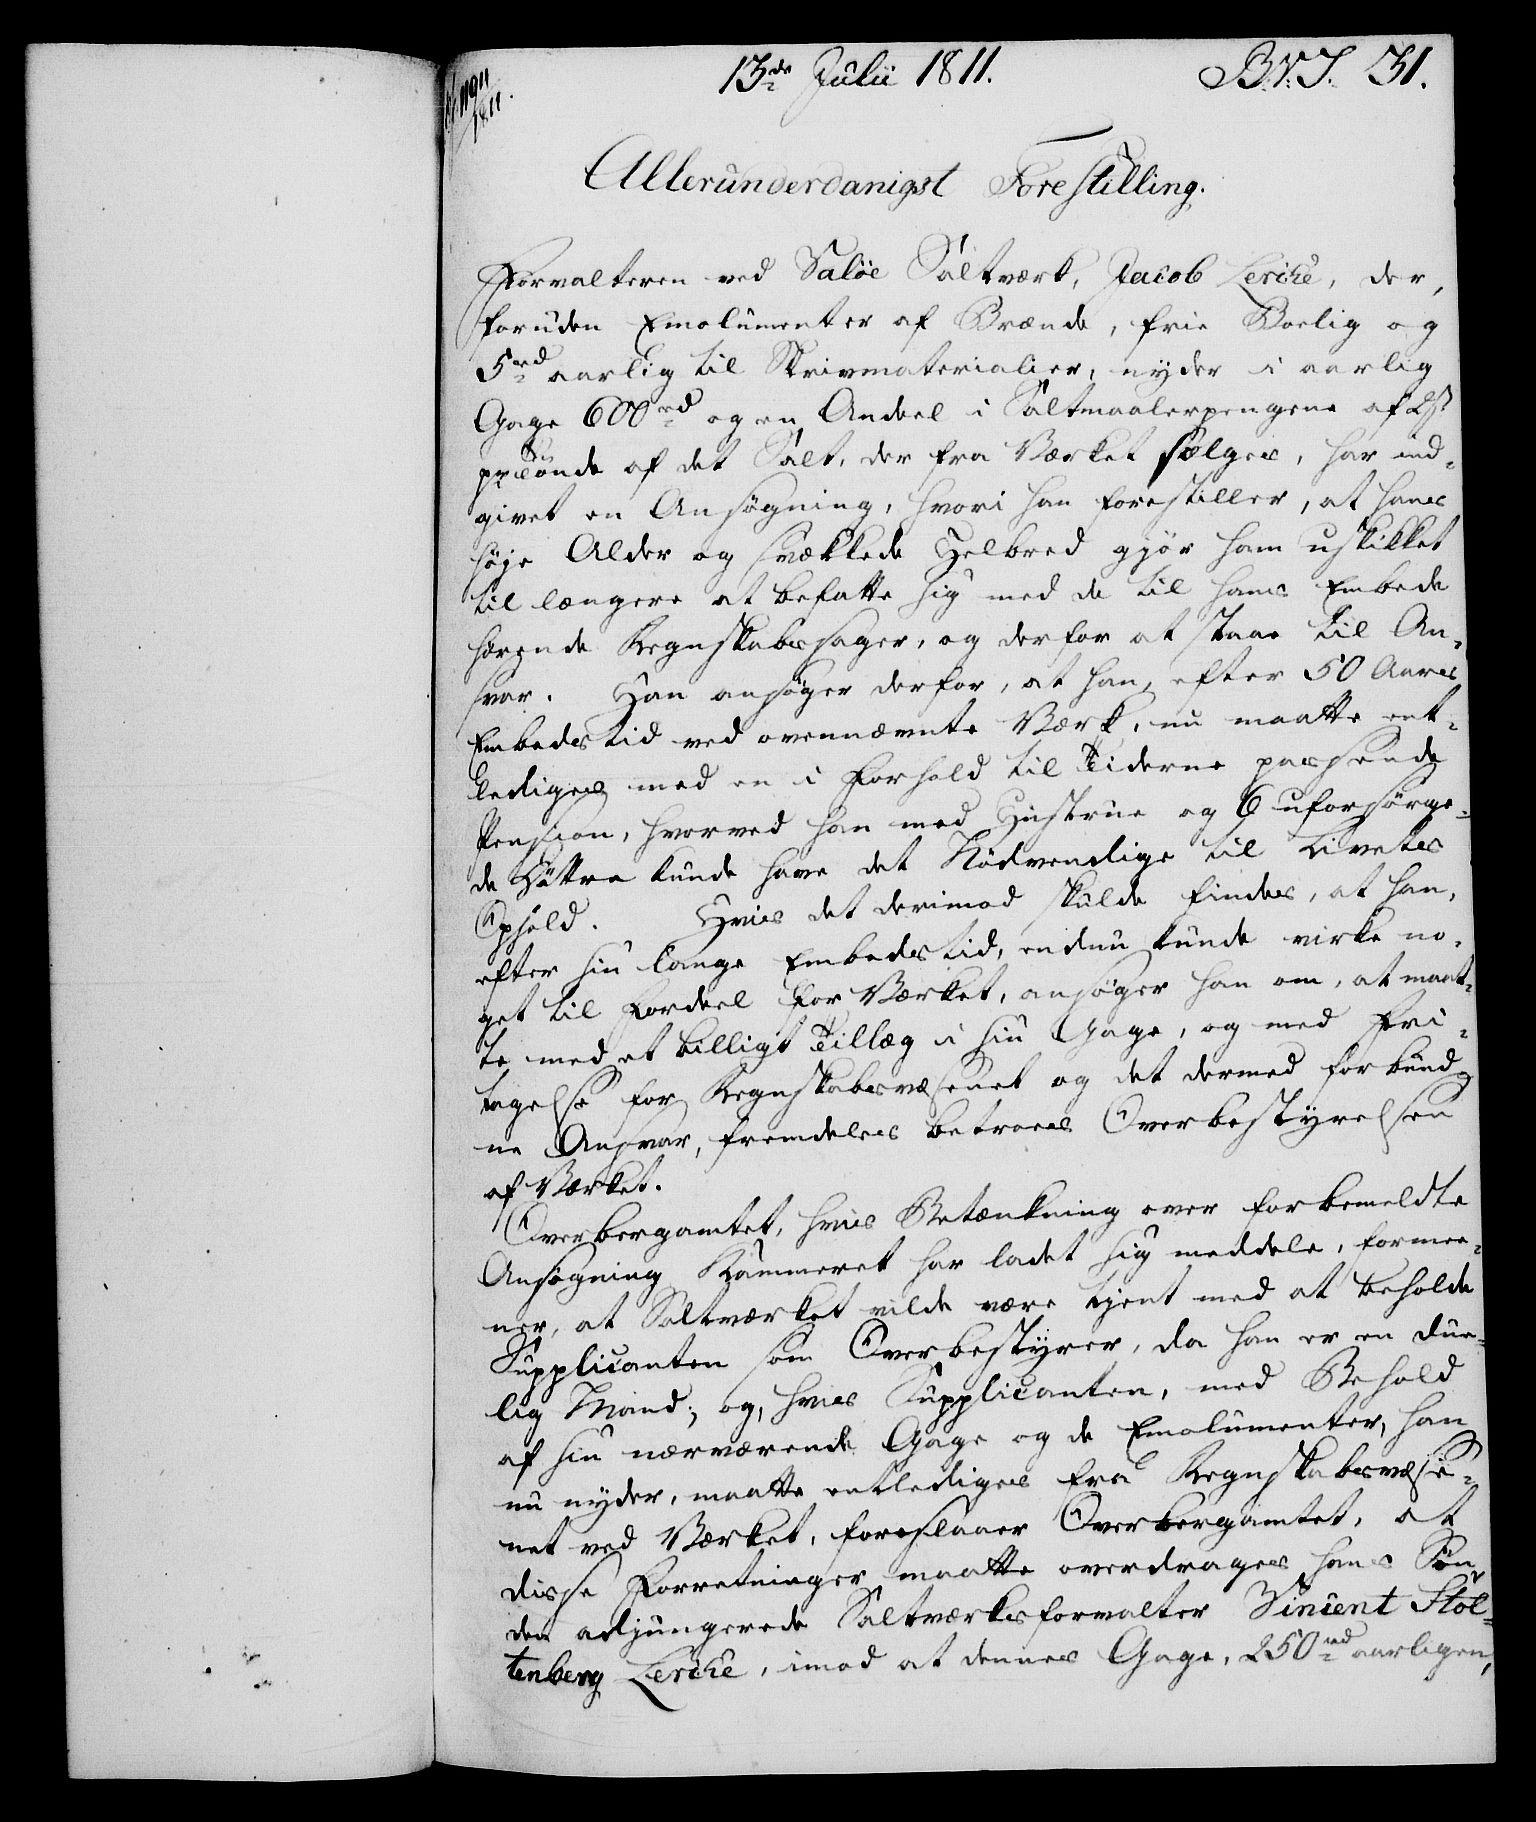 1194
1811.
13de Julii 1811.
B.V.J. 31.
Allerunderdanigst Forestilling.
Forvalteren ved Valöe Saltværk, Jacob Lerche, der,
foruden Emolumenter af Brænde, frie Boelig og
5rd aarlig til Skrivmaterialier, nyder i aarlig
Gage 600rd og en Andeel i Saltmaalerpengene af 2s
pr Tønde af det Salt, der fra Værket sælges, har ind-
givet en Ansøgning, hvori han forestiller, at hans
høje Alder og svækkede Helbred gjør ham uskikket
til længere at befatte sig med de til hans Embede
hørende Regnskabssager, og derfor at staae til An-
svar. Han ansøger derfor, at han, efter 50 Aars
Embedstid ved ovennævnte Værk, nu maatte ent-
lediges med en i Forhold til Tiderne passende
Pension, hvorved han med Hustrue og 6 uforsørge-
de Døttre kunde have det Nødvendige til Livets
Ophold. Hvis det derimod skulde findes, at han,
efter sin lange Embedstid, endnu kunde virke no-
get til Fordeel for Værket, ansøger han om, at maat-
te med et billigt Tillæg i sin Gage, og med Fri-
tagelse for Regnskabsvæsenet og det dermed forbund-
ne Ansvar, fremdeles betroes Overbestyrelsen
af Værket.
Overbergamtet, hvis Betænkning over forbemeldte
Ansøgning Kammeret har ladet sig meddele, formee-
ner, at Saltværket vilde være tjent med at beholde
Supplicanten som Overbestyrer, da han er en due-
lig Mand; og, hvis Supplicanten, med Behold
af sin nærværende Gage og de Emolumenter, han
nu nyder, maatte entlediges fra Regnskabsvæse-
net ved Værket, foreslaaer Overbergamtet, at
disse Forretninger maatte overdrages hans Søn,
den adjungerede Saltværksforvalter Vincent Stol-
tenberg Lerche, imod at dennes Gage, 250rd aarligen,